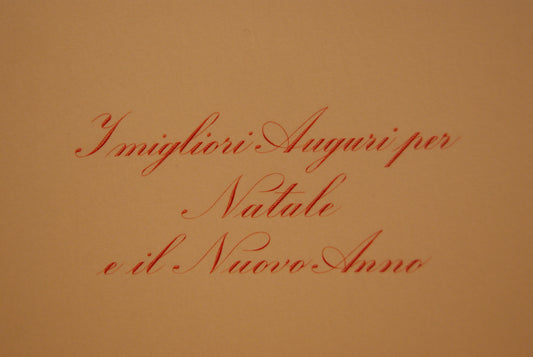 I migliori Auguri per
Natale
e il Nuovo Anno